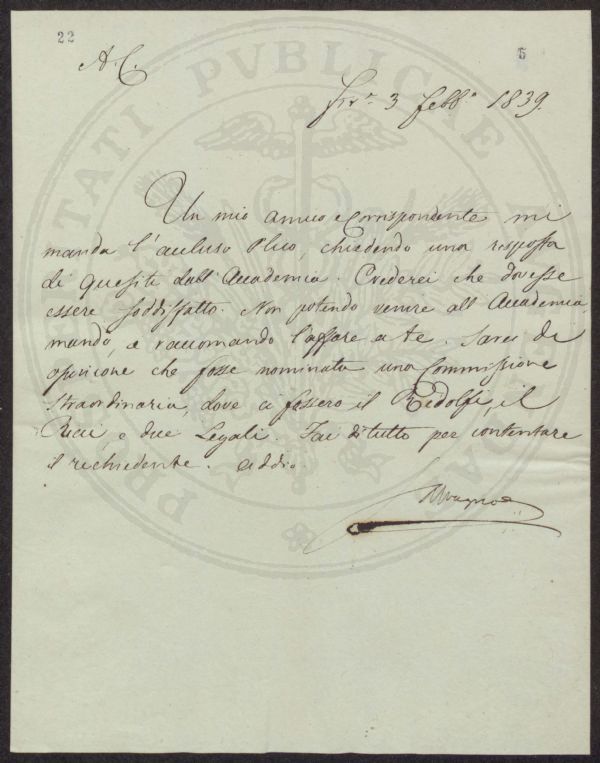 22
5
A. C.
Fir.e 3 Febb.o 1839.
Un mio amico e Corrispondente mi
manda l'accluso Plico, chiedendo una risposta
di Quesiti dall'Accademia. Crederei che dovesse
essere soddisfatto. Non potendo venire all'Accademia,
mando, e raccomando l'affare a te. Sarei di
opinione che fosse nominata una Commissione
Straordinaria, dove ci fossero il Ridolfi, il
Ricci, e due Legali. Fai di tutto per contentare
il richiedente. addio.
PROSPERITATI PVBLICAE